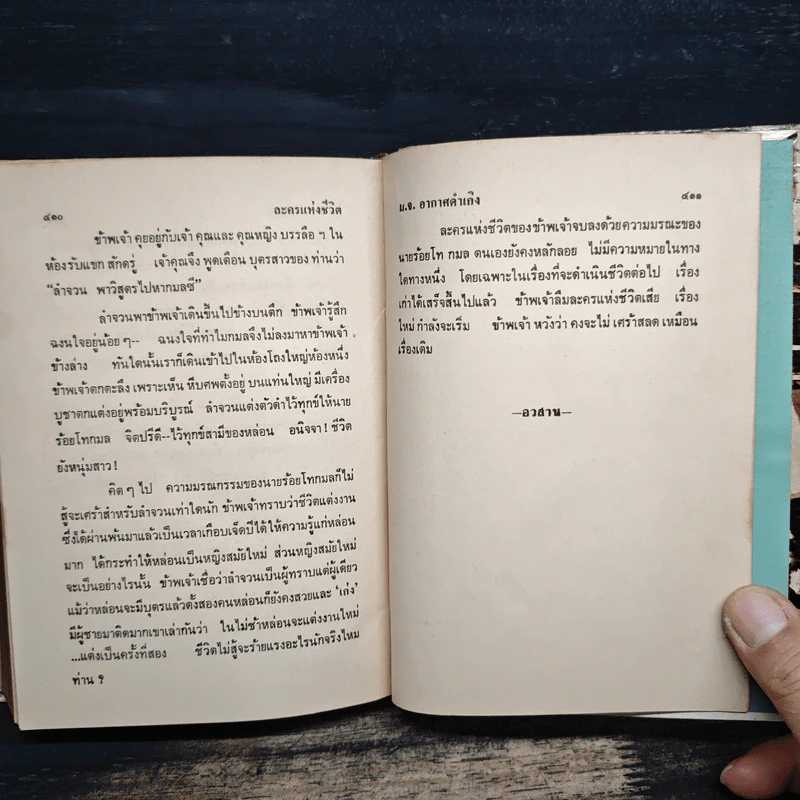 ๔๑๐ ละครแห่งชีวิต
ข้าพเจ้า คุยอยู่กับเจ้า คุณและ คุณหญิง บรรลือ ๆ ใน
ห้องรับแขก สักครู่ เจ้าคุณจึง พูดเตือน บุตรสาวของ ท่านว่า
“ลำจวน พาวิสูตรไปหากมลซี”
ลำจวนพาข้าพเจ้าเดินขึ้นไปข้างบนตึก ข้าพเจ้ารู้สึก
ฉงนใจอยู่น้อย ๆ-- ฉนงใจที่ทำไมกมลจึงไม่ลงมาหาข้าพเจ้า
ข้างล่าง ทันใดนั้นเราก็เดินเข้าไปในห้องโถงใหญ่ห้องหนึ่ง
ข้าพเจ้าตกตะลึง เพราะเห็น หีบศพตั้งอยู่ บนแท่นใหญ่ มีเครื่อง
บูชาตกแต่งอยู่พร้อมบริบูรณ์ ลำจวนแต่งตัวดำไว้ทุกข์ให้นาย
ร้อยโทกมล จิตปรีดี--ไว้ทุกข์สามีของหล่อน อนิจจา! ชีวิต
ยังหนุ่มสาว!
คิด ๆ ไป ความมรณกรรมของนายร้อยโทกมลก็ไม่
สู้จะเศร้าสำหรับลำจวนเท่าใดนัก ข้าพเจ้าทราบว่าชีวิตแต่งงาน
ซึ่งได้ผ่านพ้นมาแล้วเป็นเวลาเกือบเจ็ดปีได้ให้ความรู้แก่หล่อน
มาก ได้กระทำให้หล่อนเป็นหญิงสมัยใหม่ ส่วนหญิงสมัยใหม่
จะเป็นอย่างไรนั้น ข้าพเจ้าเชื่อว่าลำจวนเป็นผู้ทราบแต่ผู้เดียว
แม้ว่าหล่อนจะมีบุตรแล้วตั้งสองคนหล่อนก็ยังคงสวยและ ‘เก่ง’
มีผู้ชายมาติดมากเขาเล่ากันว่า ในไม่ช้าหล่อนจะแต่งงานใหม่
...แต่งเป็นครั้งที่สอง ชีวิตไม่สู้จะร้ายแรงอะไรนักจริงไหม
ท่าน ?
ม.จ. อากาศดำเกิง ๔๑๑
ละครแห่งชีวิตของข้าพเจ้าจบลงด้วยความมรณะของ
นายร้อยโท กมล ตนเองยังคงหลักลอย ไม่มีความหมายในทาง
ใดทางหนึ่ง โดยเฉพาะในเรื่องที่จะดำเนินชีวิตต่อไป เรื่อง
เก่าได้เสร็จสิ้นไปแล้ว ข้าพเจ้าลืมละครแห่งชีวิตเสีย เรื่อง
ใหม่ กำลังจะเริ่ม ข้าพเจ้า หวังว่า คงจะไม่ เศร้าสลด เหมือน
เรื่องเดิม
—อวสาน—